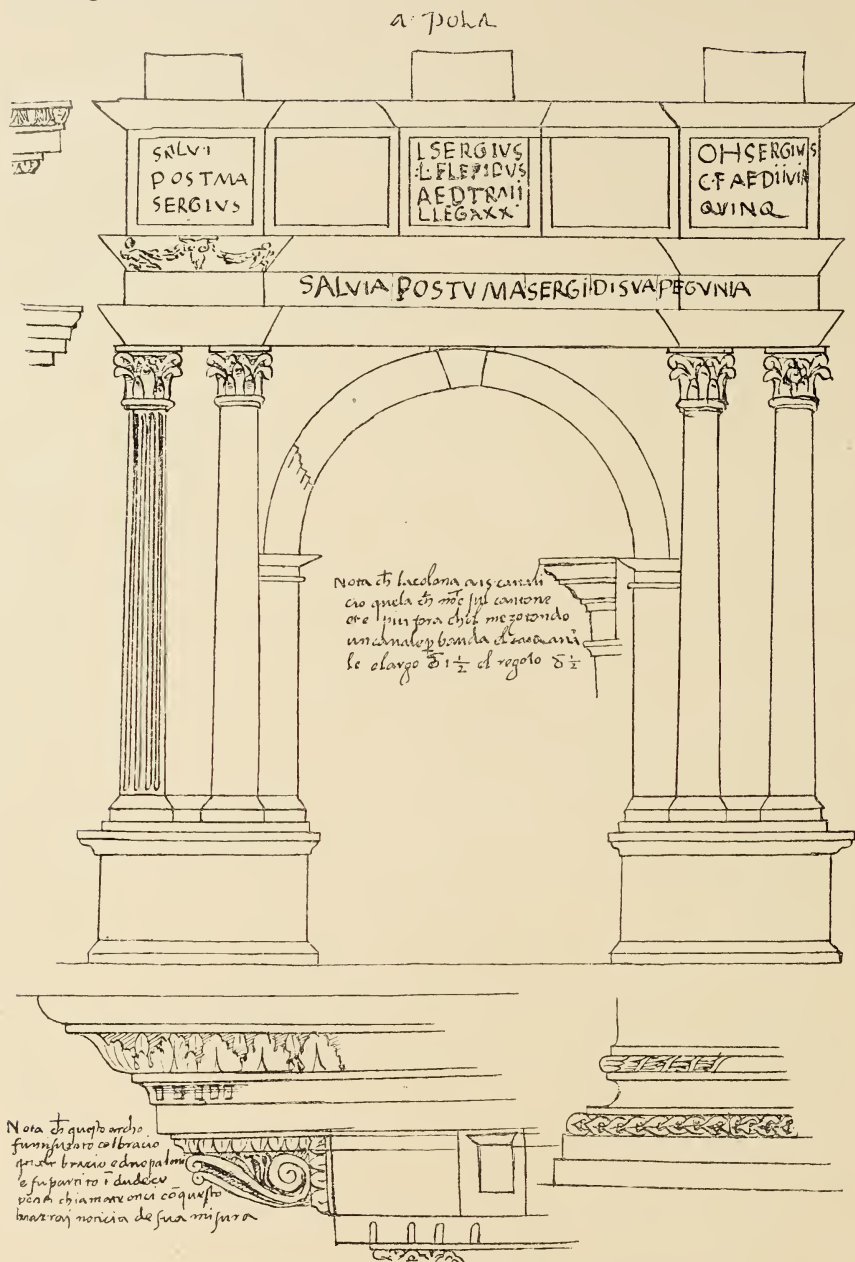 a· pola
SALVI
POSTMA
SERGIVS
L SERGIVS
·L·F LEPIDVS
AEDTRMII
LLEGAXX·
OHSERGIVIS
C·FAEDIIVIA
QVINQ
SALVIA POSTVMASERGIDISVAPEGVNIA
Nota ch lacolona
cio quela ch sul cantone
et e piu fora chel mezotondo
un canale p banda el
le elargo 1 1/2 el regolo 1/2
Nota ch questo archo
fu misurato col bracio
bracio e dui palmi
e fu partito i dudece
chiamate onci cō questo
noticia de sua misura